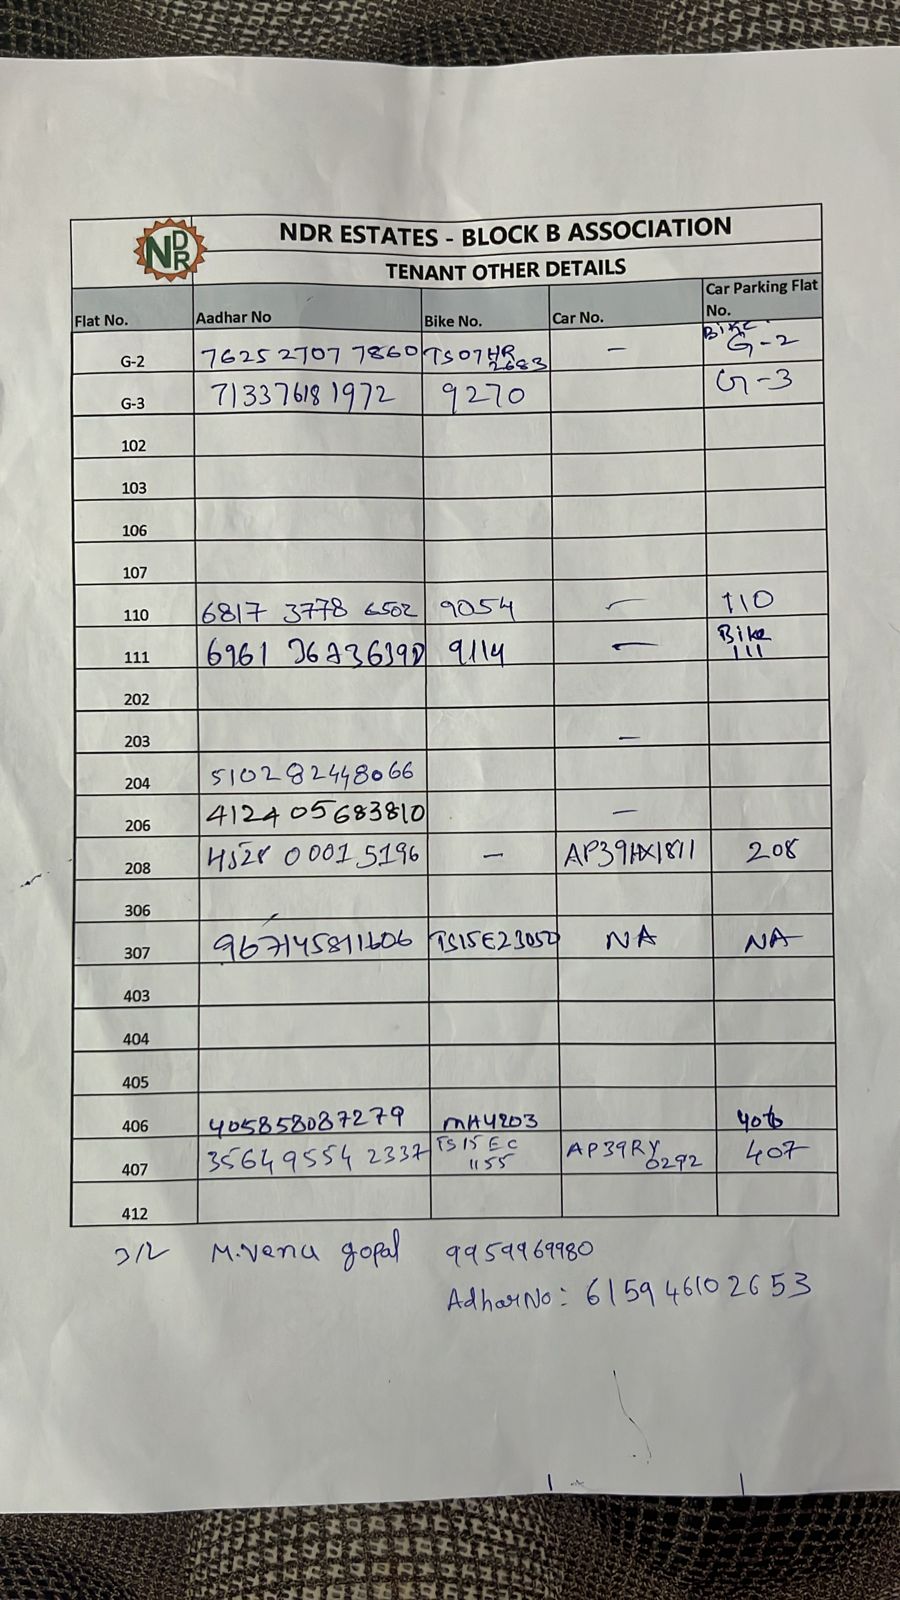 NDR
NDR ESTATES - BLOCK B ASSOCIATION
TENANT OTHER DETAILS
Flat No. Aadhar No Bike No. Car No. Car Parking Flat No.
G-2 7625 2707 7860 TS07HR 2683 – Bike G-2
G-3 713376181972 9270 G-3
102
103
106
107
110 6817 3778 6502 9054 – 110
111 6961 9114 – Bike 111
202
203 –
204 510282448066
206 412405683810 –
208 0001 5196 – AP39HX1811 208
306
307 967145811606 NA NA
403
404
405
406 405858087279 MH4203 406
407 3564 9554 2337 TS15EC 1155 AP39RY 0292 407
412
312 M.Venu gopal 9959969980
AdharNo: 6159 4610 2653